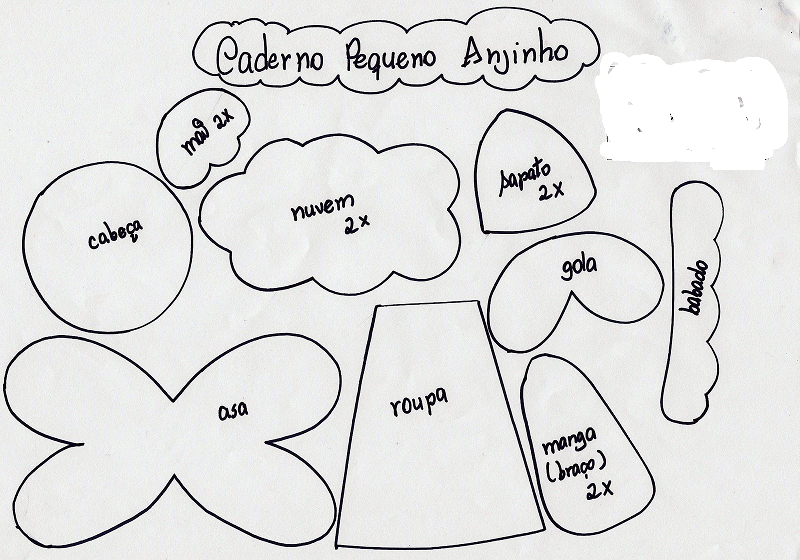 Caderno Pequeno Anjinho
mão 2x
cabeça
nuvem
2x
sapato
2x
gola
babado
asa
roupa
manga
(braço)
2x